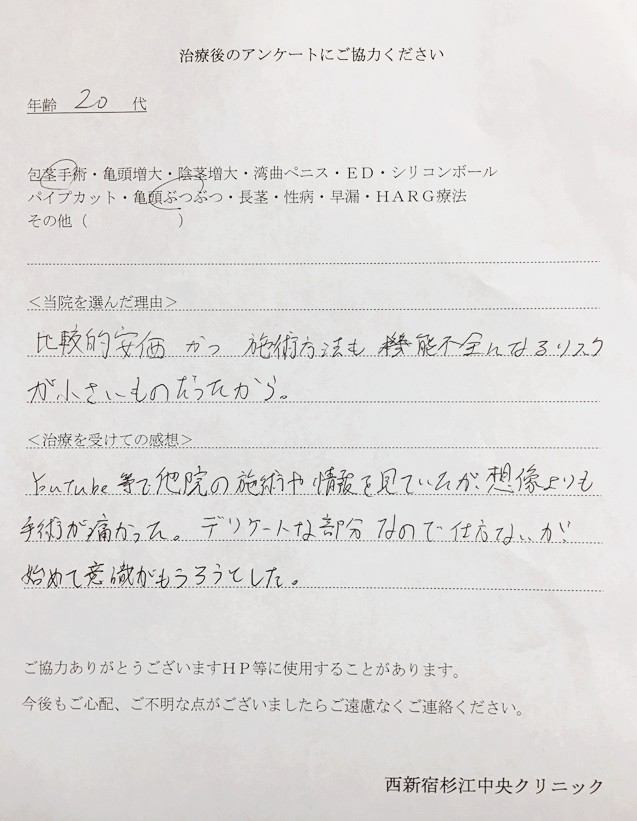 治療後のアンケートにご協力ください
年齢 20 代
包茎手術・亀頭増大・陰茎増大・湾曲ペニス・ED・シリコンボール
パイプカット・亀頭ぶつぶつ・長茎・性病・早漏・HARG療法
その他（　　　　　　）
＜当院を選んだ理由＞
比較的安価 かつ 施術方法も 機能不全になるリスク
が小さいものだったから。
＜治療を受けての感想＞
Youtube等で他院の施術や情報を見ていたが、想像よりも
手術が痛かった。デリケートな部分なので仕方ないが
始めて意識がもうろうとした。
ご協力ありがとうございますHP等に使用することがあります。
今後もご心配、ご不明な点がございましたらご遠慮なくご連絡ください。
西新宿杉江中央クリニック